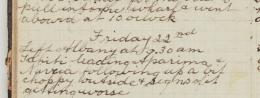 pull into the wharf & went
aboard at 10 oclock
Friday 22nd
Left Albany at 9.30 am
Tahiti leading Aparima &
Navua following up a bit
choppy outside & signs of
getting worse